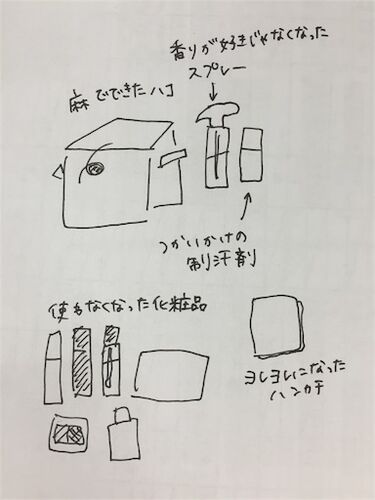 香りが好きじゃなくなった
スプレー
麻でできたハコ
つかいかけの
制汗剤
使わなくなった化粧品
ヨレヨレになった
ハンカチ